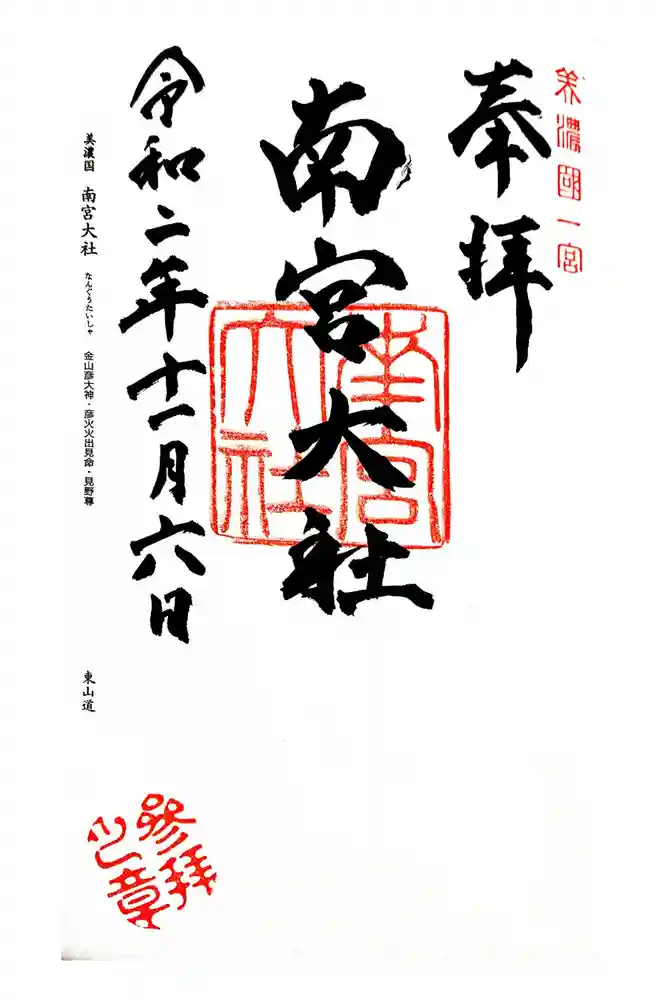 美濃國一宮
奉拝
南宮大社
南宮大社
令和二年十一月六日
美濃国 南宮大社 なんぐうたいしゃ 金山彦大神・彦火火出見命・見野尊
東山道
參拜之章